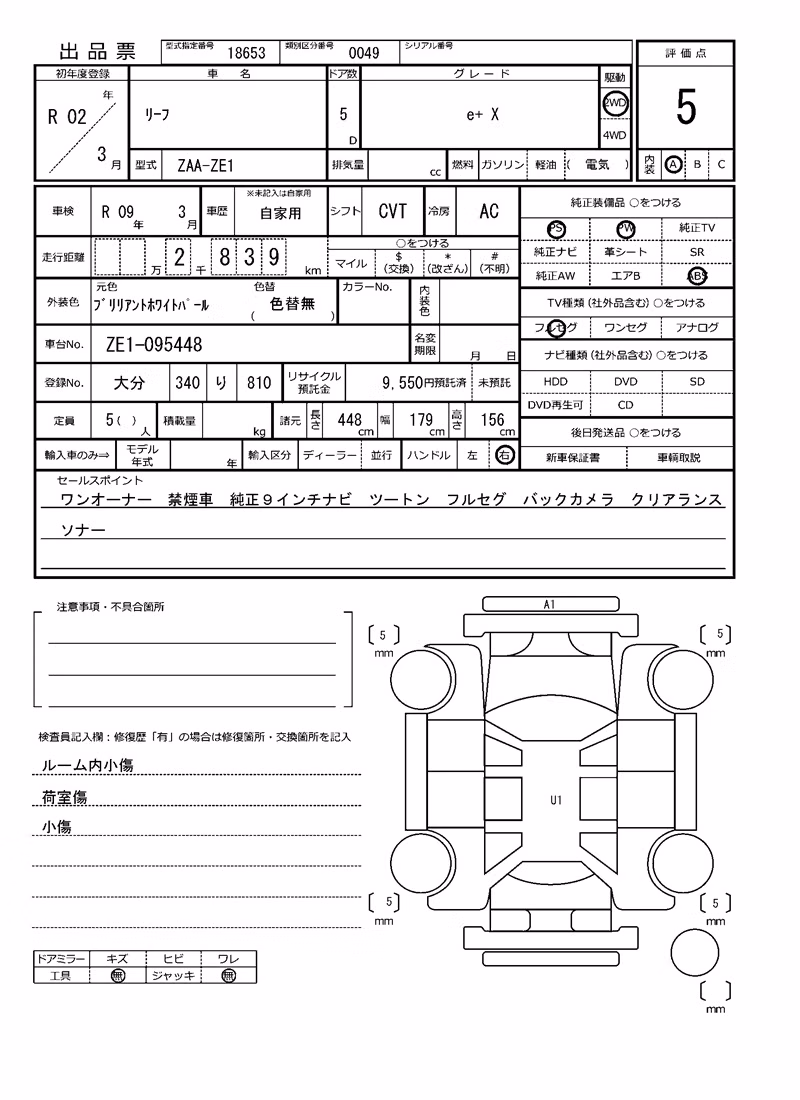 出品票 型式指定番号 18653 類別区分番号 0049 シリアル番号
評価点
初年度登録 車 名 ドア数 グレード 駆動
R 02 年 3 月 リーフ 5 D e+ X 2WD 4WD
5
型式 ZAA-ZE1 排気量 cc 燃料 ガソリン 軽油 ( 電気 ) 内装 A B C
車検 R 09 年 3 月 車歴 ※未記入は自家用 自家用 シフト CVT 冷房 AC
純正装備品 ○をつける
PS PW 純正TV
走行距離 万 2 千 8 3 9 km ○をつける マイル $ (交換) * (改ざん) # (不明)
純正ナビ 革シート SR
純正AW エアB ABS
外装色 元色 ブリリアントホワイトパール 色替 ( 色替無 ) カラーNo. 内装色
TV種類(社外品含む) ○をつける
フルセグ ワンセグ アナログ
車台No. ZE1-095448 名変期限 月 日
ナビ種類(社外品含む) ○をつける
登録No. 大分 340 り 810 リサイクル預託金 9,550円預託済 未預託
HDD DVD SD
DVD再生可 CD
定員 5( ) 人 積載量 kg 諸元 長さ 448 cm 幅 179 cm 高さ 156 cm
後日発送品 ○をつける
輸入車のみ⇒ モデル年式 年 輸入区分 ディーラー 並行 ハンドル 左 右
新車保証書 車輌取説
セールスポイント
ワンオーナー 禁煙車 純正9インチナビ ツートン フルセグ バックカメラ クリアランス
ソナー
注意事項・不具合箇所
検査員記入欄:修復歴「有」の場合は修復箇所・交換箇所を記入
ルーム内小傷
荷室傷
小傷
ドアミラー キズ ヒビ ワレ
工具 無 ジャッキ 無
A1
[ 5 ] mm
[ 5 ] mm
U1
[ 5 ] mm
[ 5 ] mm
[ ] mm